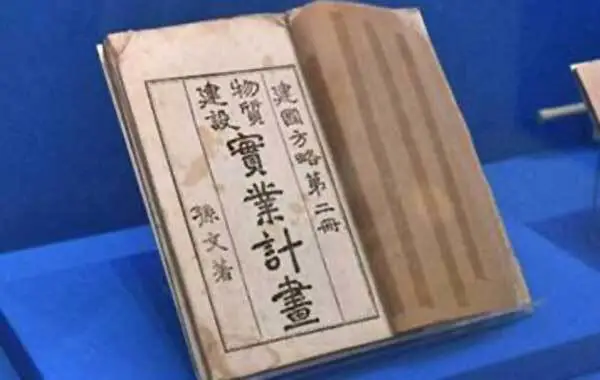 建國方略第二冊
物質建設
實業計畫
孫文著